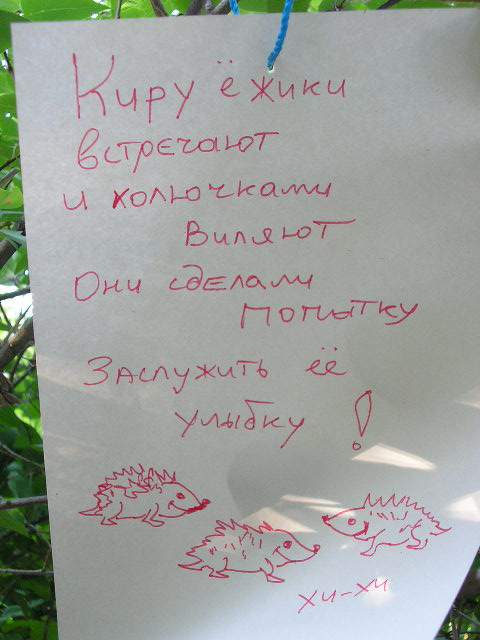 Киру ёжики
встречают
и колючками
виляют
Они сделали
попытку
Заслужить её
улыбку!
хи-хи